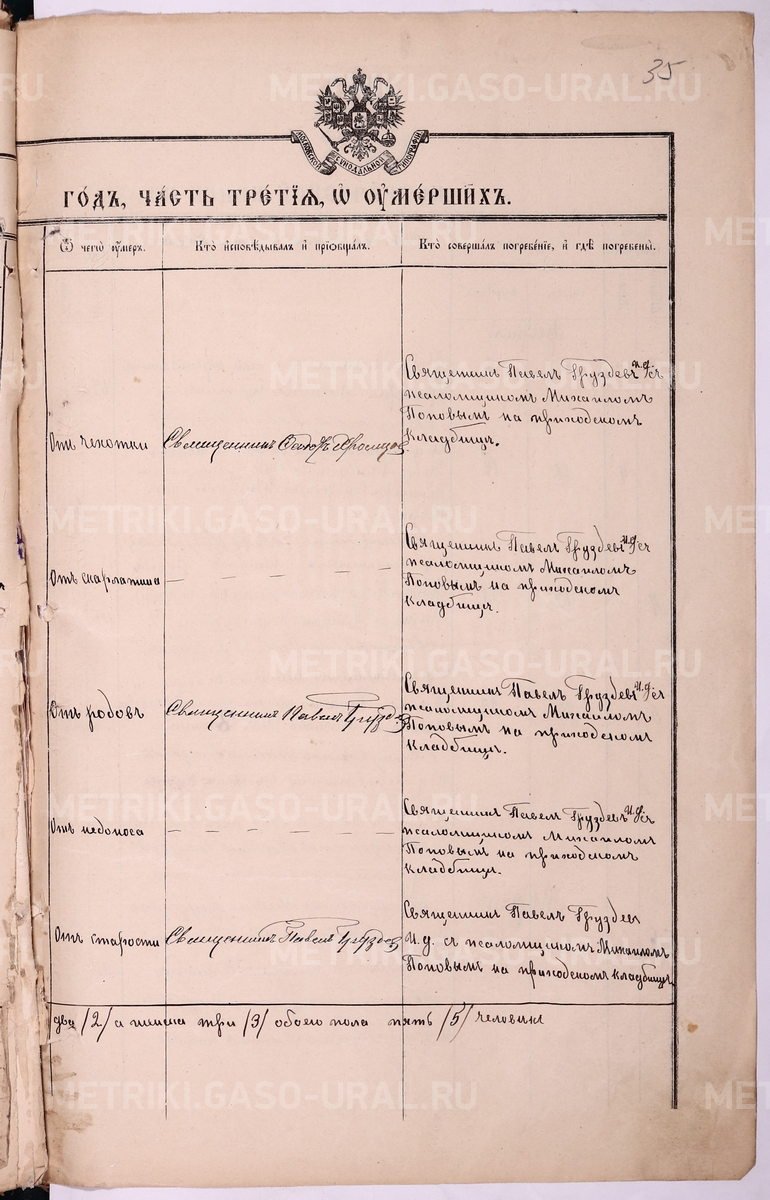 35
МОСКОВСКОЙ СѴНОДАЛЬНОЙ ТИПОГРАФІИ
ГО́ДЪ, ЧА́СТЬ ТРЕ́ТІЯ, Ѿ ОУМЕ́РШИХЪ.
Ѿ чегѡ̀ оу́меръ.
Кто̀ и҆сповѣ́дывалъ и҆ прїѡбща́лъ.
Кто̀ соверша́лъ погребе́нїе, и҆ гдѣ̀ погребены̀.
Отъ чехотки
Священникъ
Священникъ Павелъ Груздевъ съ и. д.
псаломщикомъ Михаиломъ
Поповымъ на приходскомъ
кладбищѣ.
Отъ скарлатина
Священникъ Павелъ Груздевъ съ и. д.
псаломщикомъ Михаиломъ
Поповымъ на приходскомъ
кладбищѣ.
Отъ родовъ
Священникъ Павелъ Груздевъ
Священникъ Павелъ Груздевъ съ и. д.
псаломщикомъ Михаиломъ
Поповымъ на приходскомъ
кладбищѣ.
Отъ недоноса
Священникъ Павелъ Груздевъ съ и. д.
псаломщикомъ Михаиломъ
Поповымъ на приходскомъ
кладбищѣ.
Отъ старости
Священникъ Павелъ Груздевъ
Священникъ Павелъ Груздевъ
и. д. съ псаломщикомъ Михаиломъ
Поповымъ на приходскомъ кладбищѣ
два /2/ а женска три /3/ обоего пола пять /5/ человѣкъ
METRIKI.GASO-URAL.RU